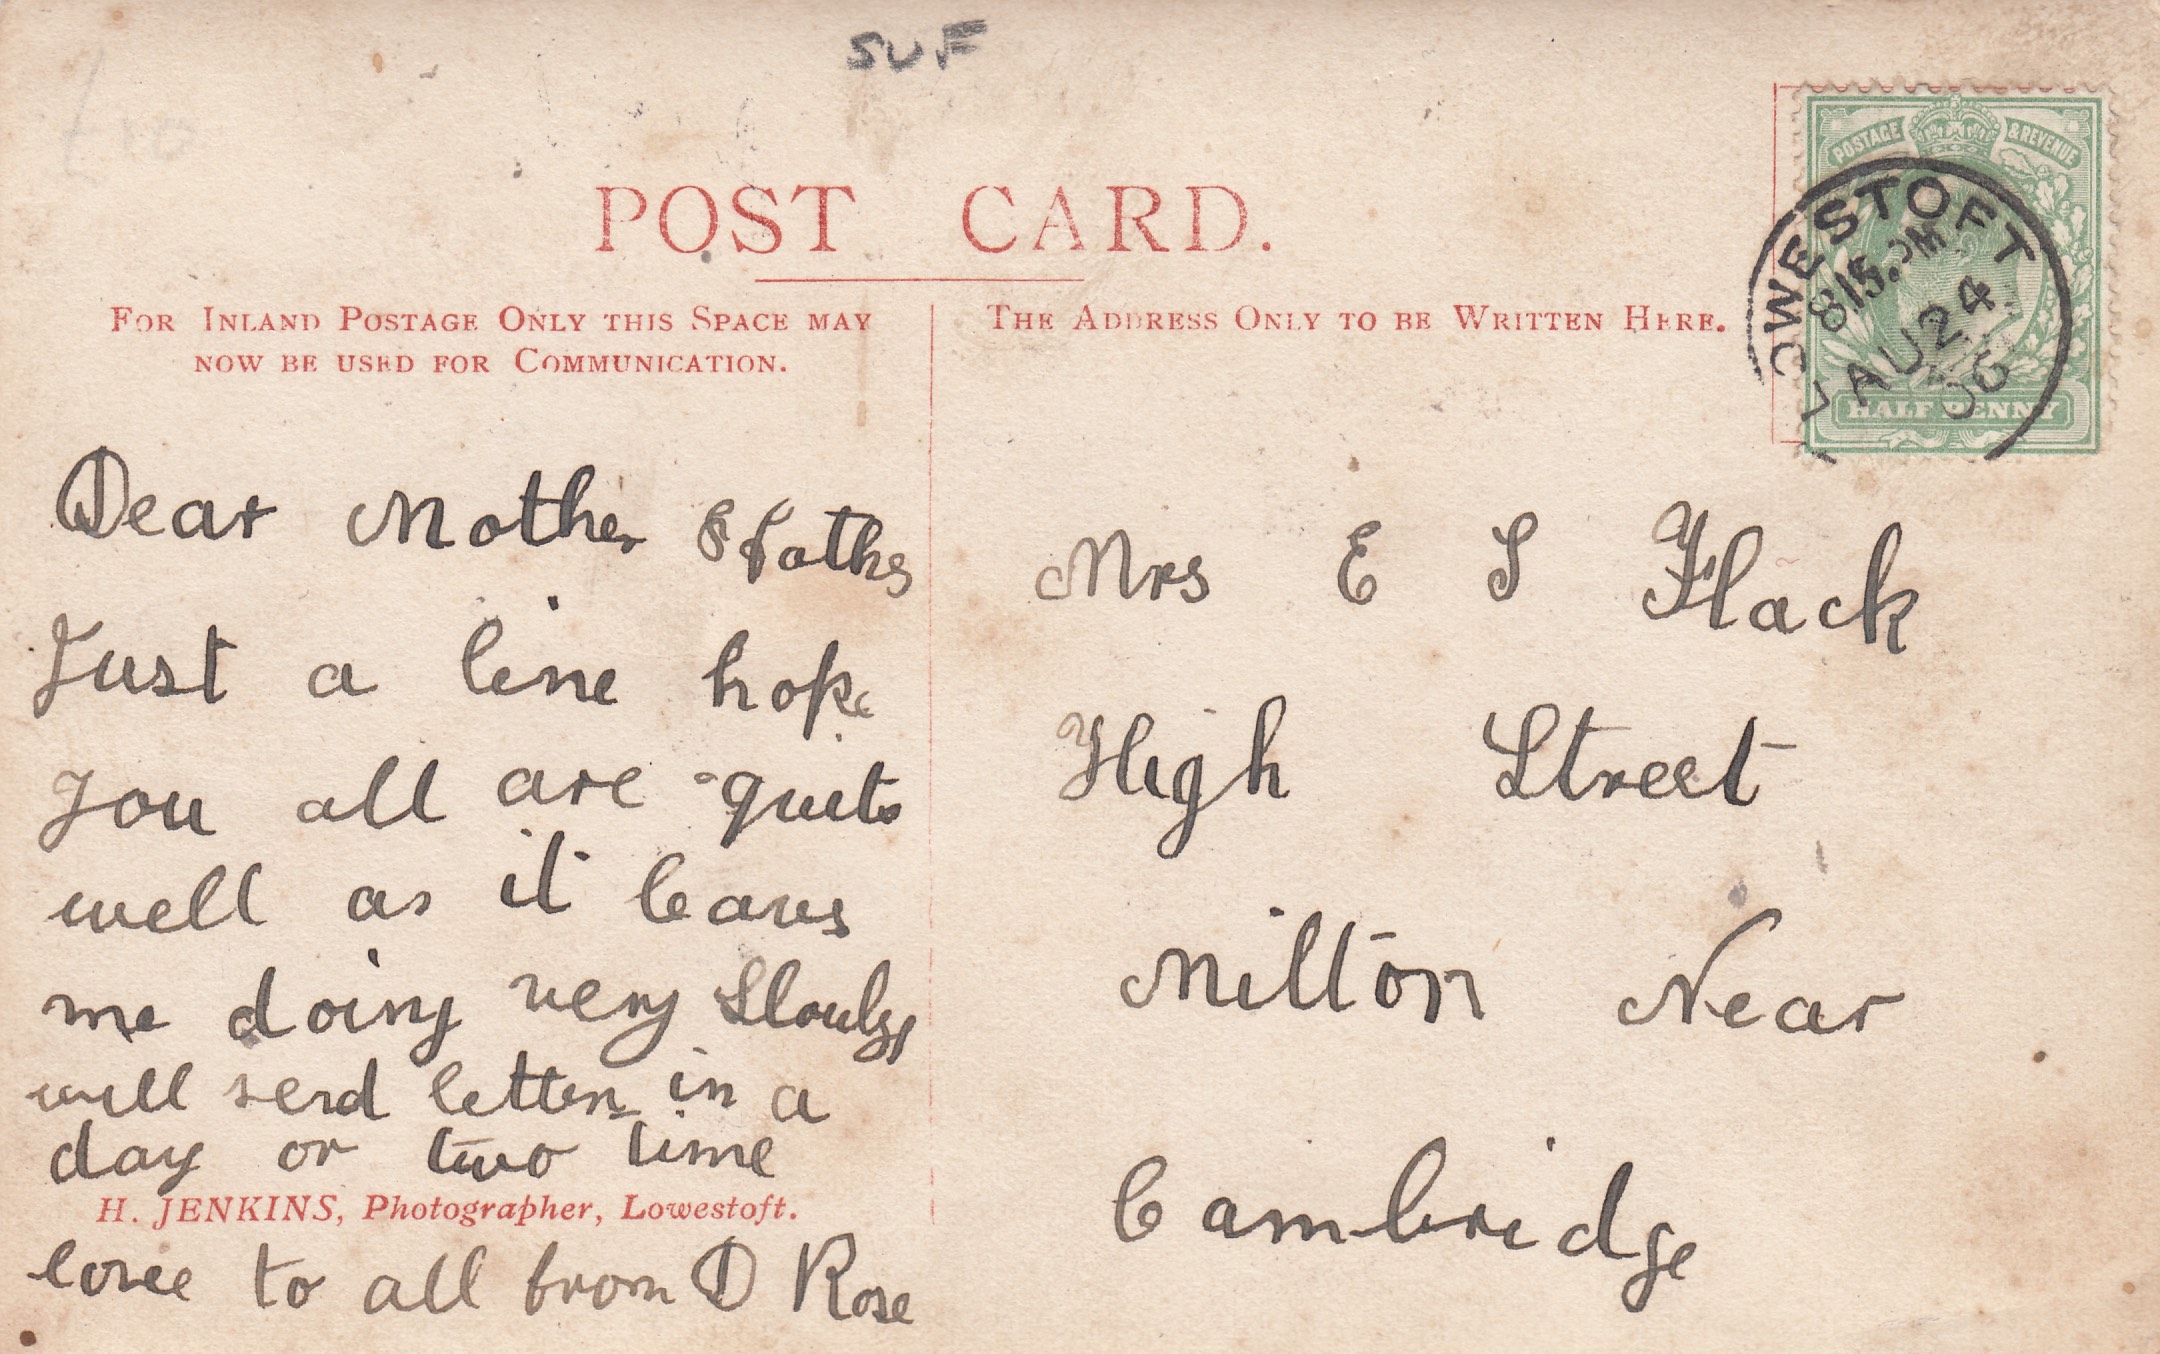 SUF
£10
POST CARD.
FOR INLAND POSTAGE ONLY THIS SPACE MAY
NOW BE USED FOR COMMUNICATION.
THE ADDRESS ONLY TO BE WRITTEN HERE.
POSTAGE & REVENUE
HALF PENNY
LOWESTOFT
815 PM
AU 24
06
Dear Mother & Father
Just a line hope
you all are quite
well as it leaves
me doing very Slowly
will send letter in a
day or two time
H. JENKINS, Photographer, Lowestoft.
love to all from D Rose
Mrs E S Flack
High Street
Milton Near
Cambridge